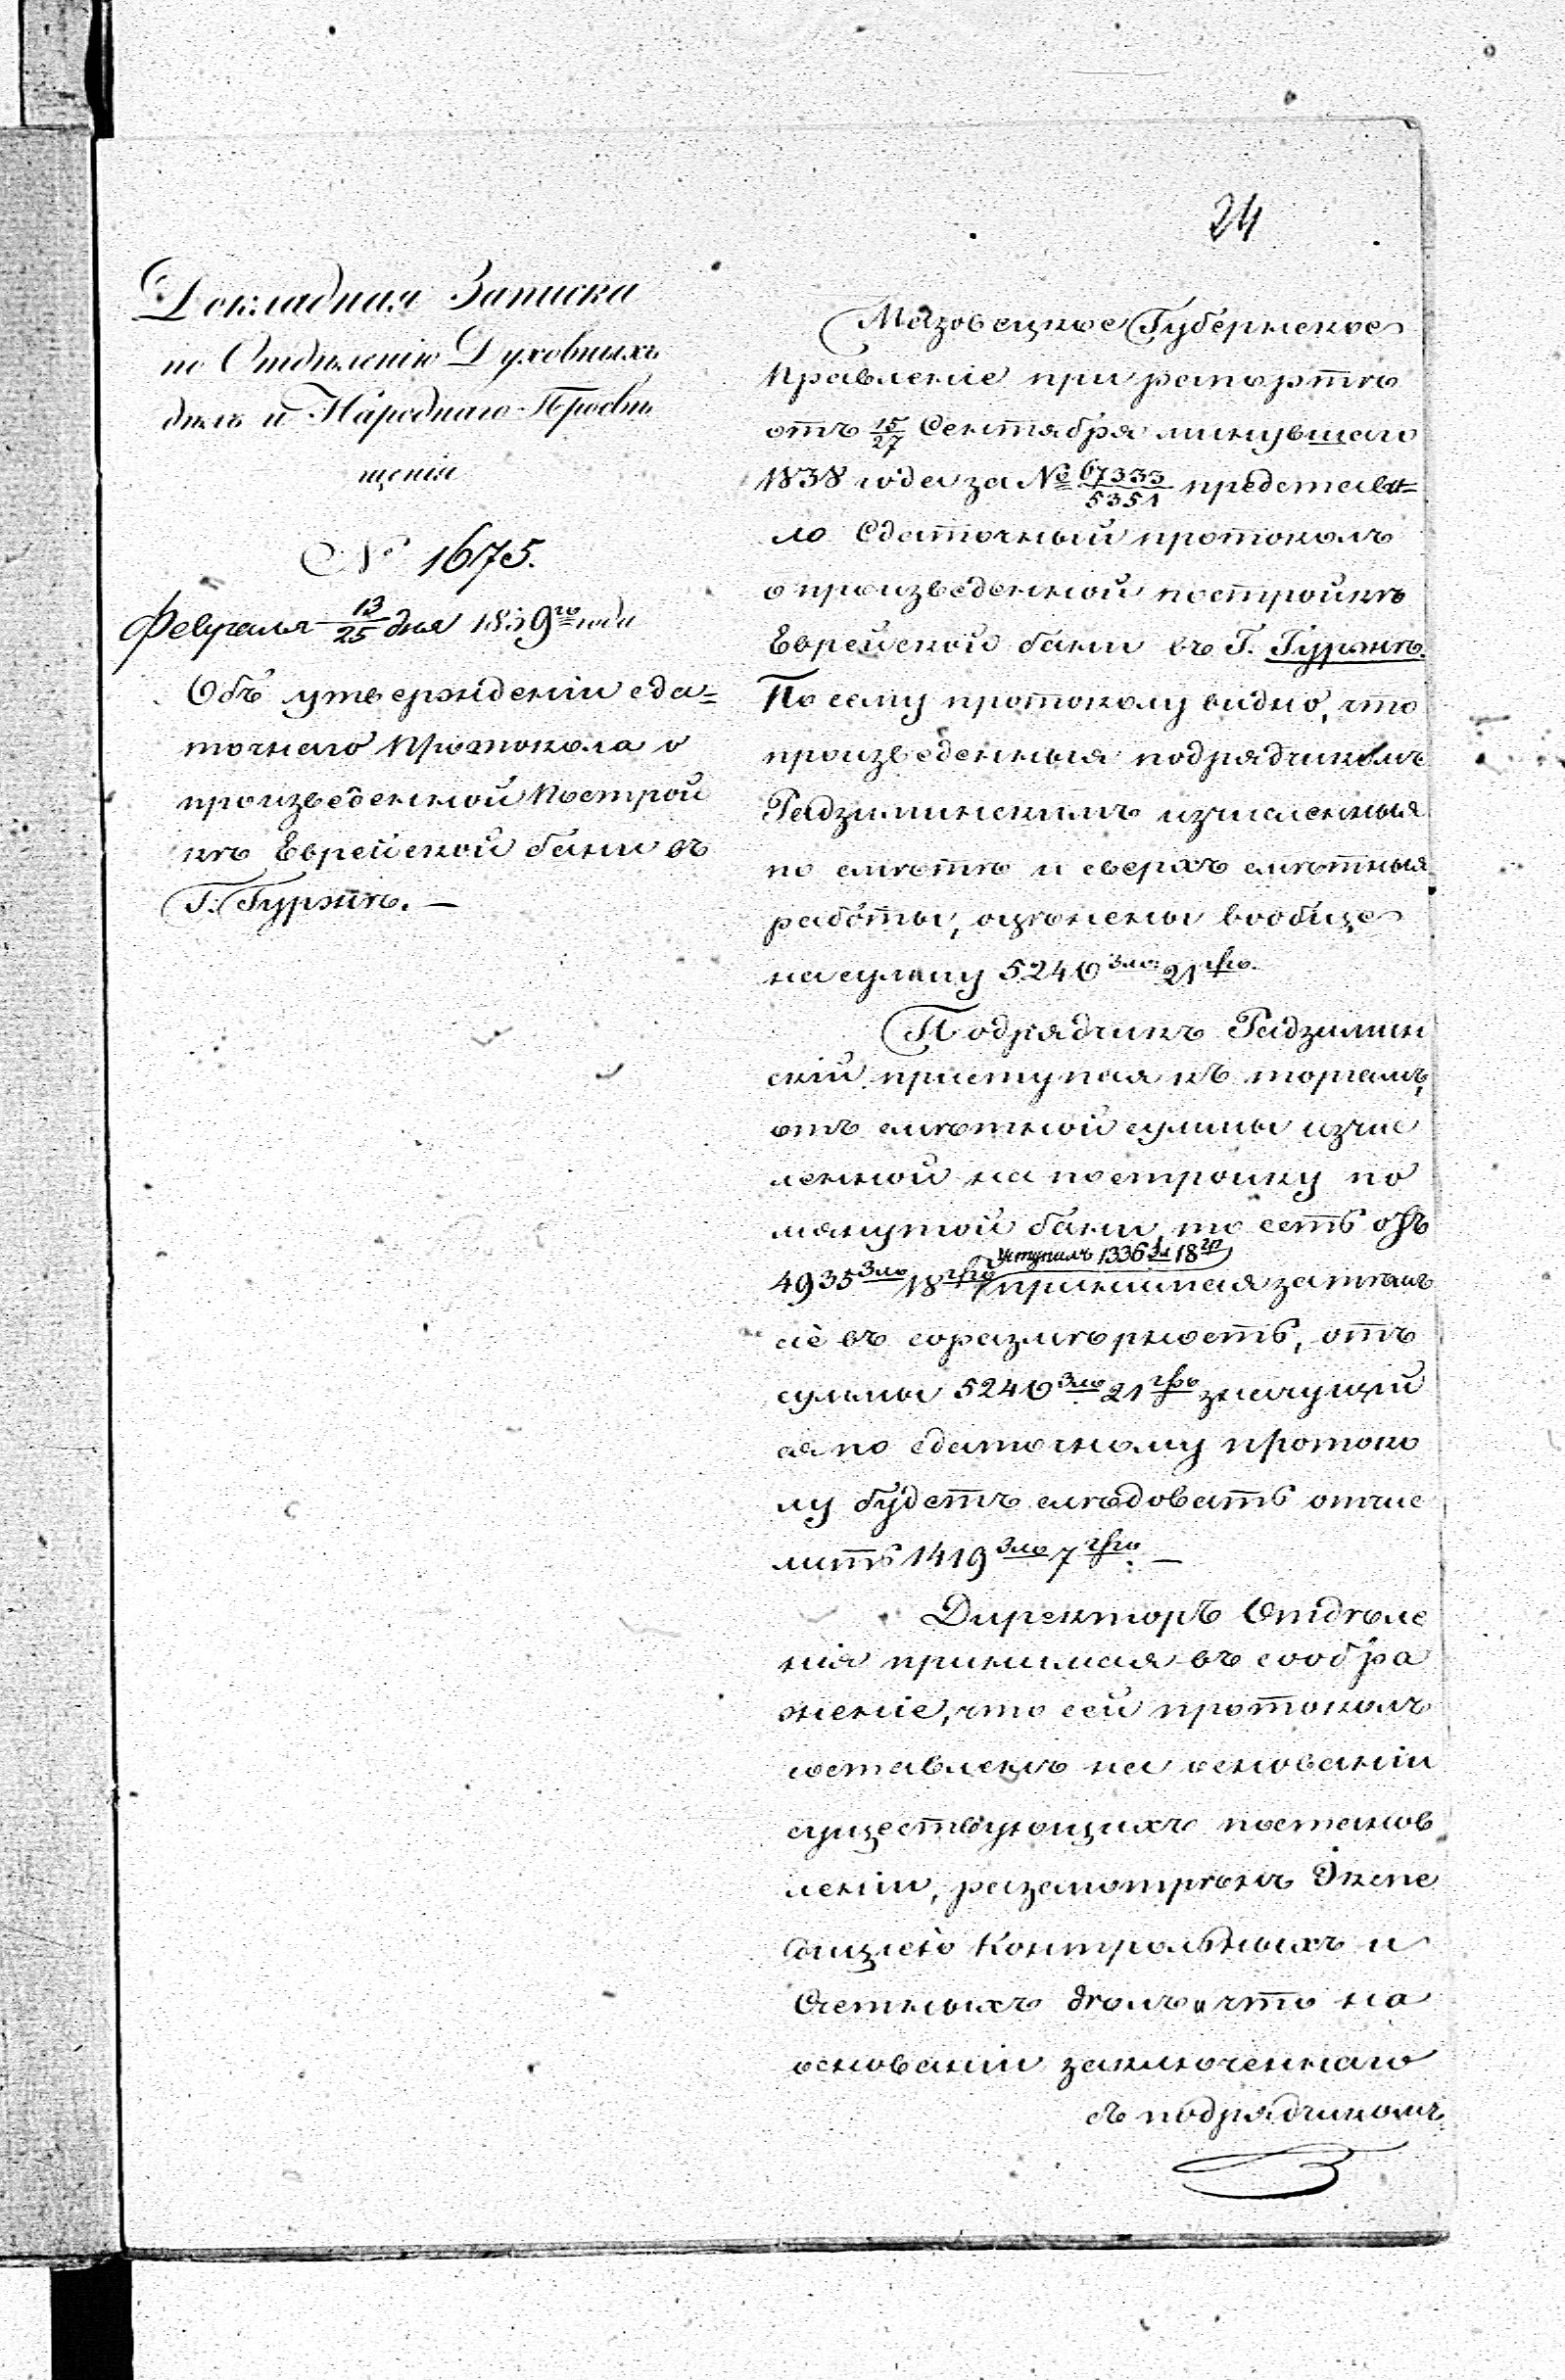 24
Докладная Записка
по Отдѣленію Духовныхъ
дѣлъ и Народнаго Просвѣ
щенія
№ 1675.
Февраля 13/25 дня 1839го года
Объ утвержденіи сда=
точнаго протокола о
произведенной построй
кѣ Еврейской бани въ
Г. Гуржнѣ. —
Мазовецкое Губернское
Правленіе при рапортѣ
отъ 15/27 Сентября минувшаго
1838 года за № 67333/5351 представи=
ло Сдаточный протоколъ
о произведенной постройкѣ
Еврейской бани въ Г. Гуржнѣ.
По сему протоколу видно, что
произведенныя подрядчикомъ
Радзиминскимъ изчисленныя
по смѣтѣ и сверхъ смѣтныя
работы, оцѣнены вообще
на сумму 5240 Зло 21 гро.
Подрядчикъ Радзимин
скій приступая къ торгамъ,
отъ смѣтной суммы изчис
ленной на постройку по
мянутой бани то есть отъ
уступилъ 1336 Зл 18 гр
4935 Зло 18 гро принимая затѣмъ
сіе въ соразмѣрность, отъ
суммы 5240 Зло 21 гро значущей
ся по сдаточному протоко
лу будетъ слѣдовать отчис
лить 1419 Зло 7 гро. —
Директоръ Отдѣле
нія принимая въ сообра
женіе, что сей протоколъ
составленъ на основаніи
существующихъ постанов
леніи, разсмотрѣнъ Экспе
диціею Контрольныхъ и
Счетныхъ дѣлъ и что на
основаніи заключеннаго
съ подрядчикомъ